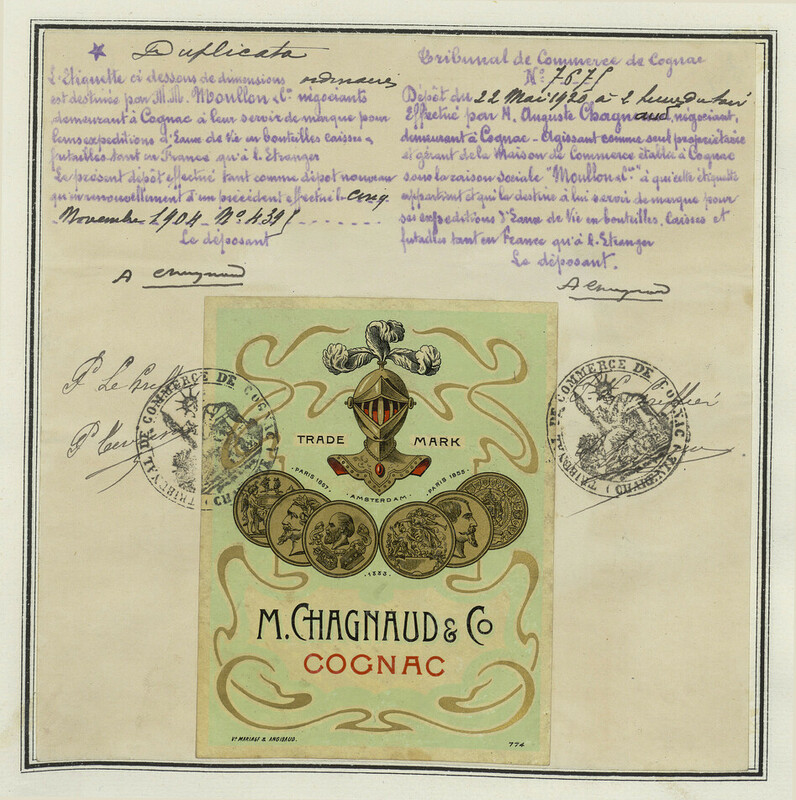 Duplicata
L'Etiquette ci dessous de dimensions ordinaires
est destinée par M.M. Moullon & Cie négociants
demeurant à Cognac à leur servir de marque pour
leurs expéditions d'Eaux de Vie en bouteilles caisses &
futailles tant en France qu'à l'Etranger
Le présent dépôt effectué tant comme dépôt nouveau
qu'en renouvellement d'un précédent effectué le Cinq
Novembre 1904 Nº 4395
Le déposant
A Chagnaud
Tribunal de Commerce de Cognac
Nº 7675
Dépôt du 22 Mai 1920 à 2 heures du soir
Effectué par M. Auguste Chagnaud, négociant,
demeurant à Cognac - Agissant comme seul propriétaire
et gérant de la Maison de Commerce établie à Cognac
sous la raison sociale "Moullon & Cie" à qui cette étiquette
appartient et qui la destine à lui servir de marque pour
ses expéditions d'Eaux de Vie en bouteilles, Caisses et
futailles tant en France qu'à l'Etranger
Le déposant.
A Chagnaud
TRIBUNAL DE COMMERCE DE COGNAC
TRIBUNAL DE COMMERCE DE COGNAC
TRADE MARK
PARIS 1867
AMSTERDAM
PARIS 1855
1883
M. CHAGNAUD & Co
COGNAC
Vº MARIAGE & ANGIBAUD.
774